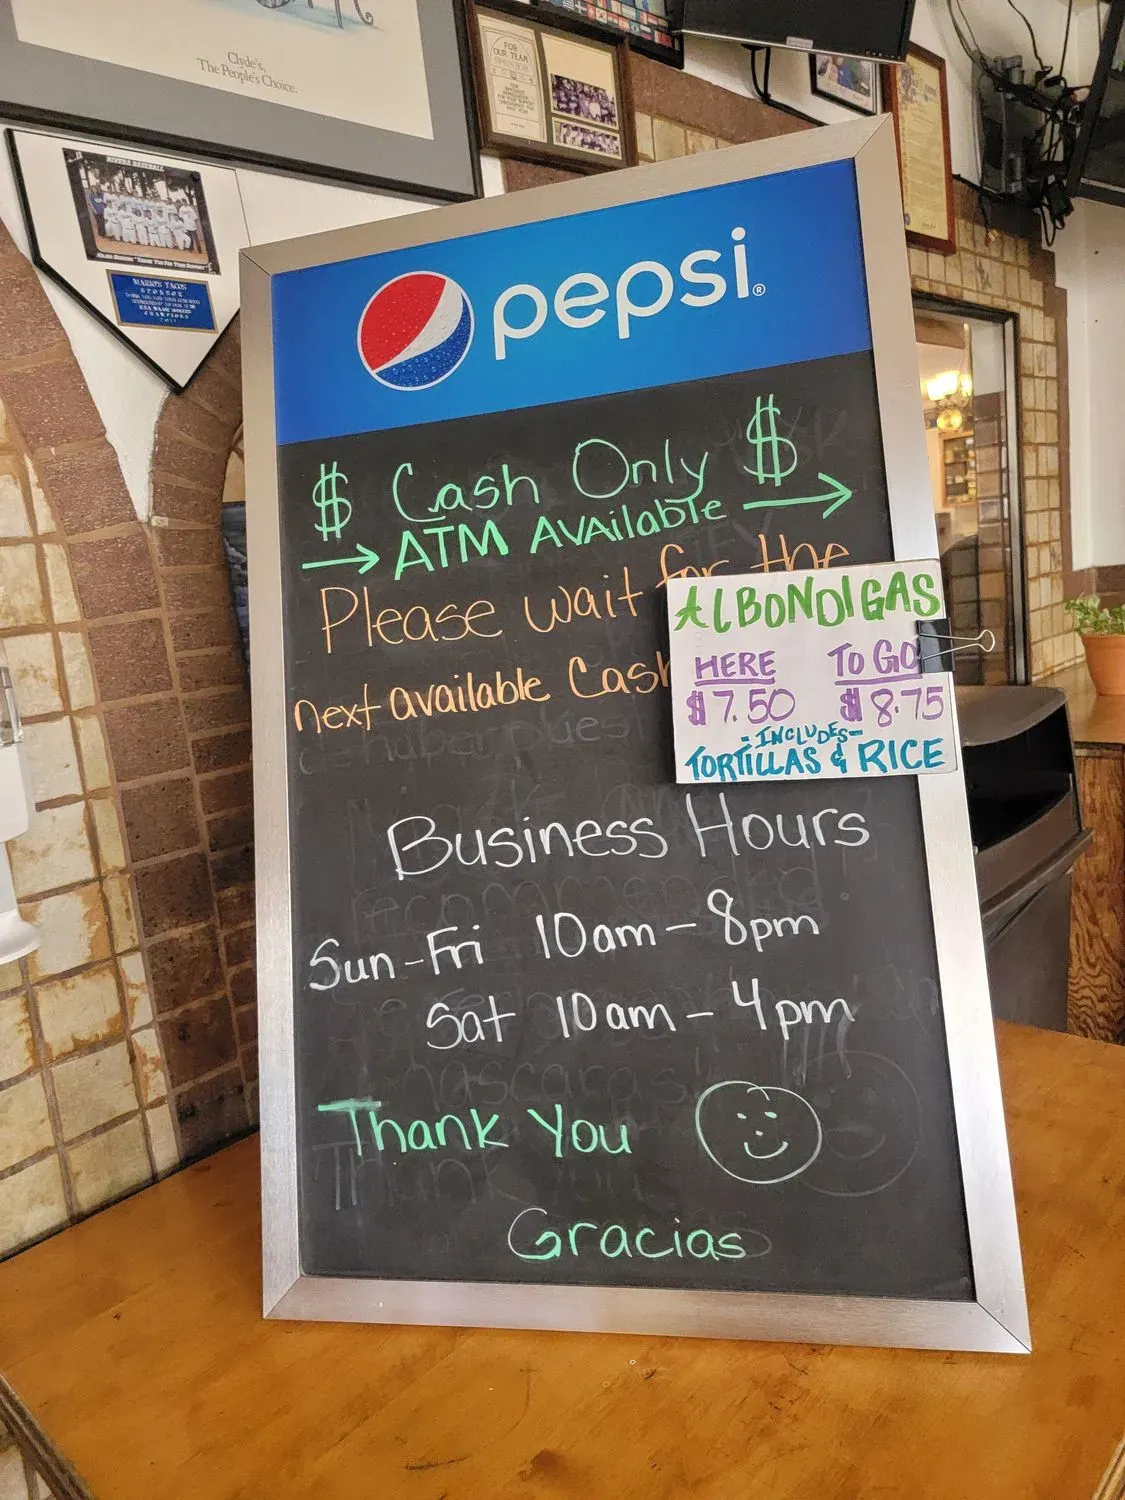 Clyde's,
The People's Choice.
FOR
OUR TEAM
SPONSOR
RIVERA BASEBALL
MARIO'S TACOS
SPONSOR
pepsi®
$ Cash Only $
→ ATM Available →
Please wait for the
next available Cash
ALBONDIGAS
HERE TO GO
$7.50 $8.75
-INCLUDES-
TORTILLAS & RICE
Business Hours
Sun-Fri 10am-8pm
Sat 10am-4pm
Thank You
Gracias